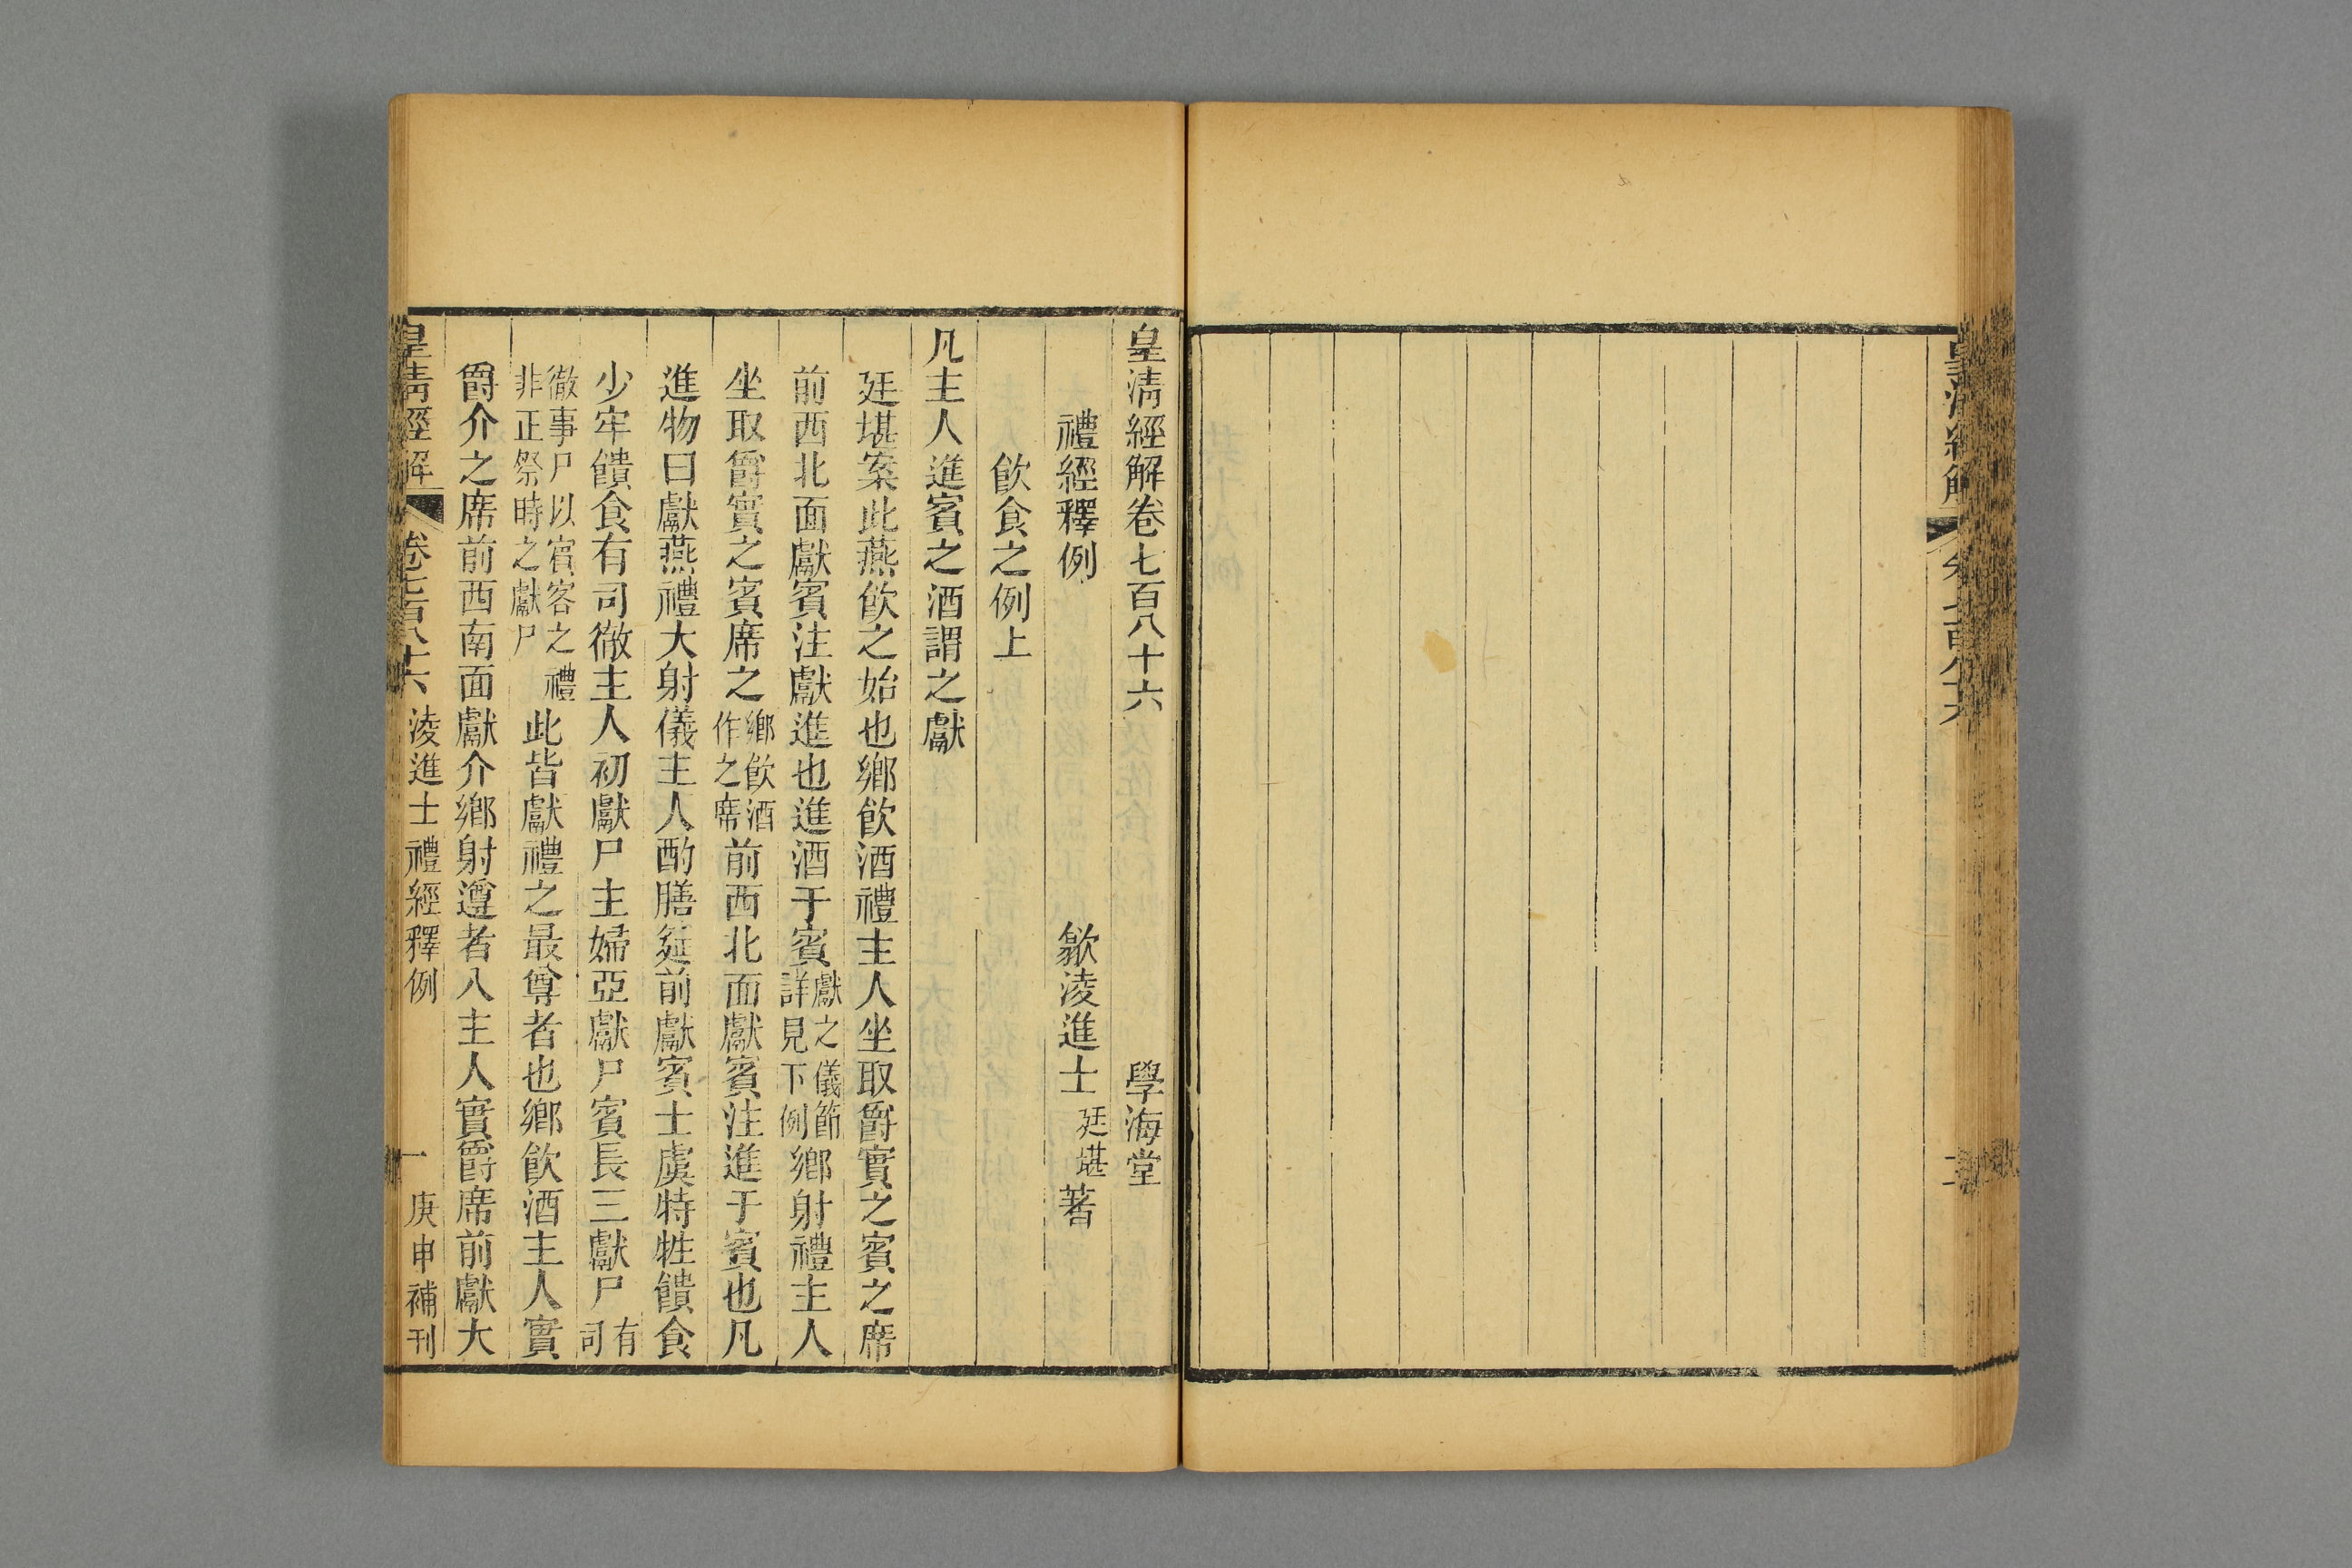 皇清經解卷七百八十六 學海堂
禮經釋例 歙淩進士廷堪著
飲食之例上
凡主人進賓之酒謂之獻
廷堪案此燕飲之始也鄉飲酒禮主人坐取爵實之賓之席
前西北面獻賓注獻進也進酒于賓獻之儀節詳見下例鄉射禮主人
坐取爵實之賓席之鄉飲酒作之席前西北面獻賓注進于賓也凡
進物曰獻燕禮大射儀主人酌膳筵前獻賓士虞特牲饋食
少牢饋食有司徹主人初獻尸主婦亞獻尸賓長三獻尸有司
徹事尸以賓客之禮非正祭時之獻尸此皆獻禮之最尊者也鄉飲酒主人實
爵介之席前西南面獻介鄉射遵者入主人實爵席前獻大
皇清經解 卷七百八十六 淩進士禮經釋例 一 庚申補刊